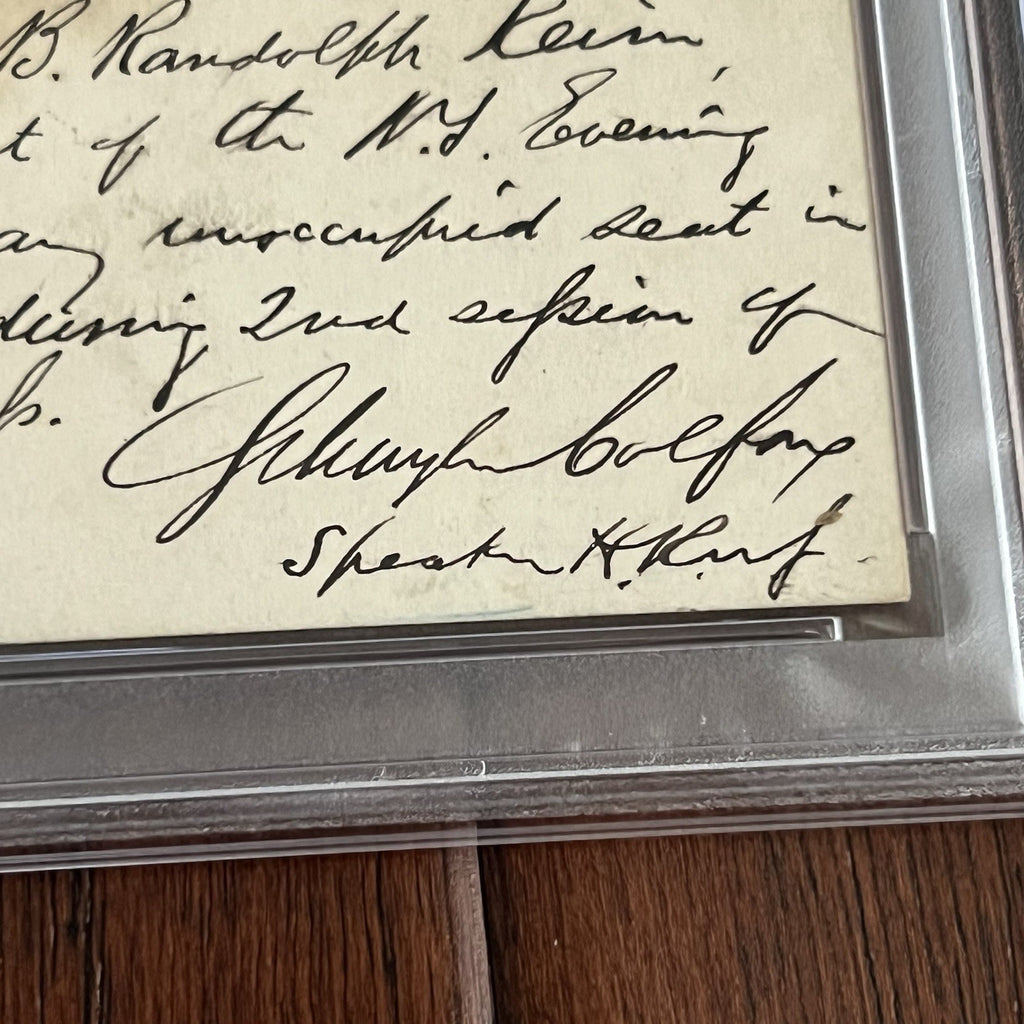 B. Randolph Keim,
t of the N.Y. Evening
any unoccupied seat in
during 2nd session of
s.
Schuyler Colfax
Speaker H. Reps.